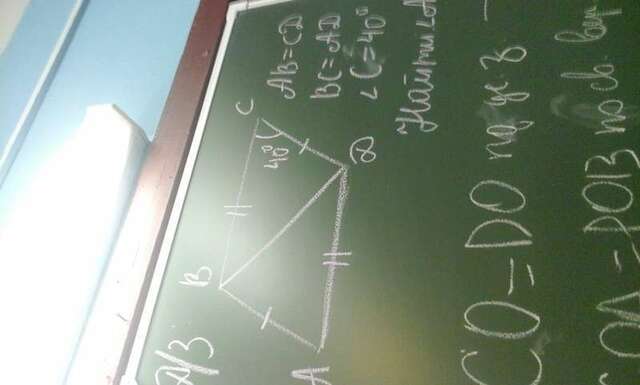 Д/З
B
C
40°
A
D
AB=CD
BC=AD
∠C=40°
Найти ∠A
CO=DO по ус. з.
COA=DOB по св. вер